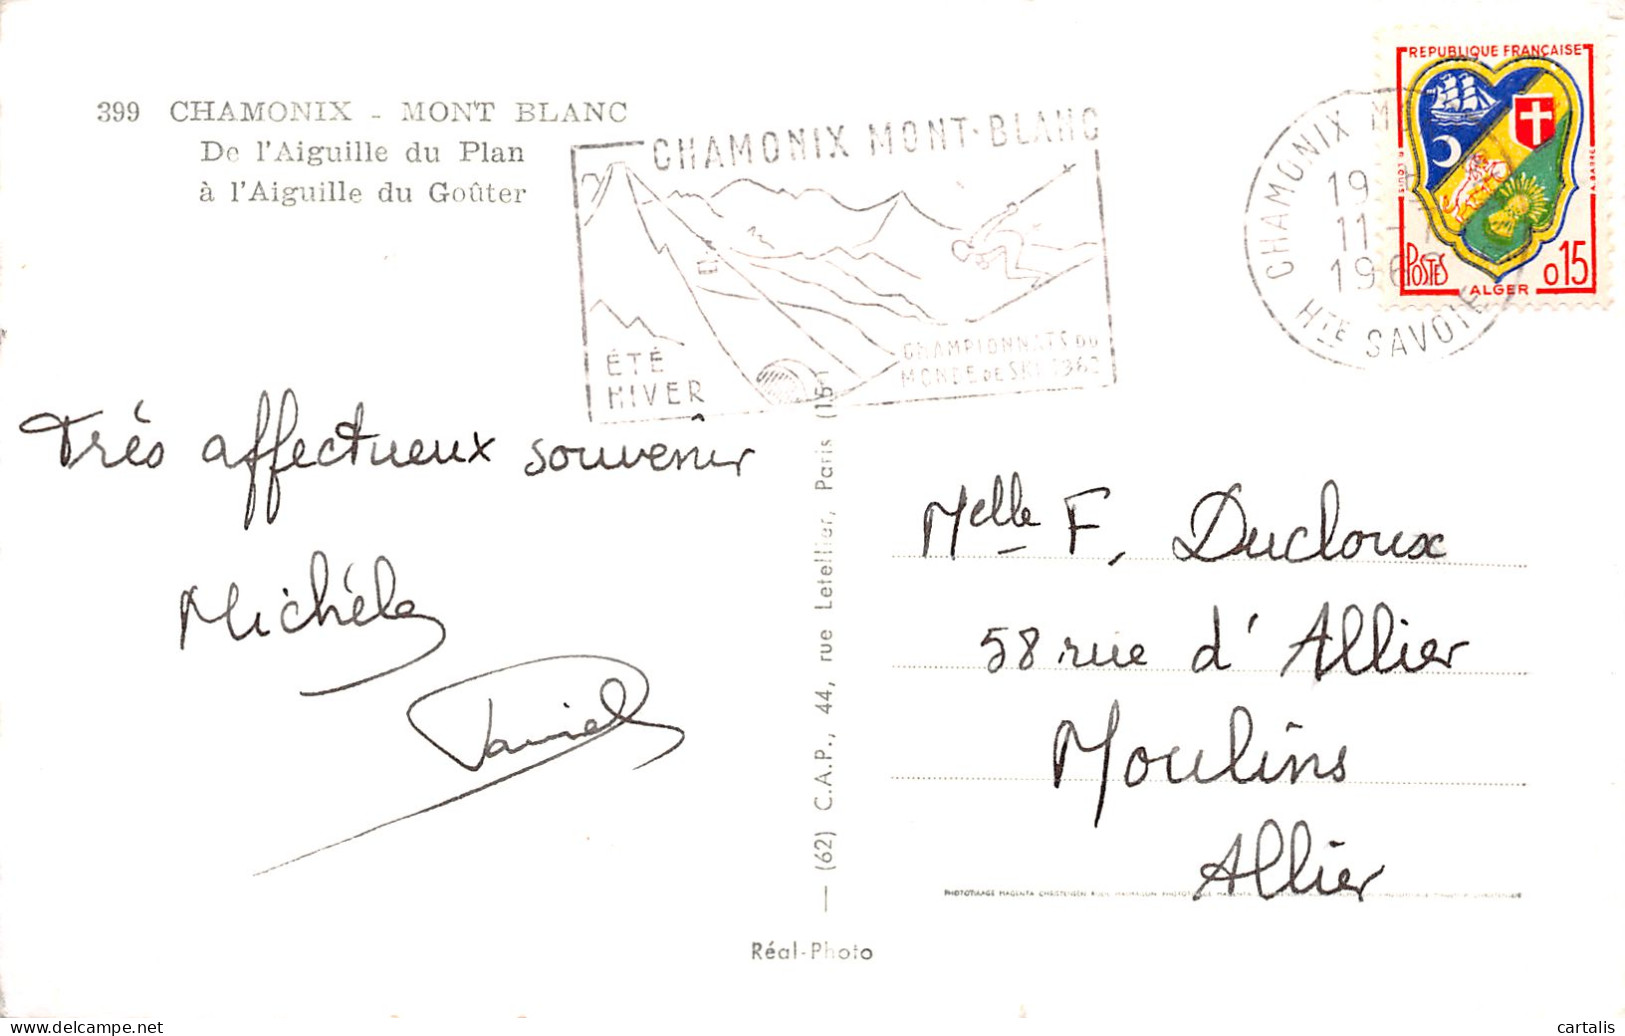 399 CHAMONIX - MONT BLANC
De l'Aiguille du Plan
à l'Aiguille du Goûter
CHAMONIX MONT-BLANC
ÉTÉ
HIVER
CHAMPIONNATS DU
MONDE DE SKI 1962
CHAMONIX
19
11
196
HTE SAVOIE
REPUBLIQUE FRANÇAISE
POSTES
ALGER
0,15
Très affectueux souvenir
Michèle
Daniel
(62) C.A.P., 44, rue Letellier, Paris (15e)
Melle F. Ducloux
58 rue d'Allier
Moulins
Allier
Réal-Photo
cartalis
www.delcampe.net